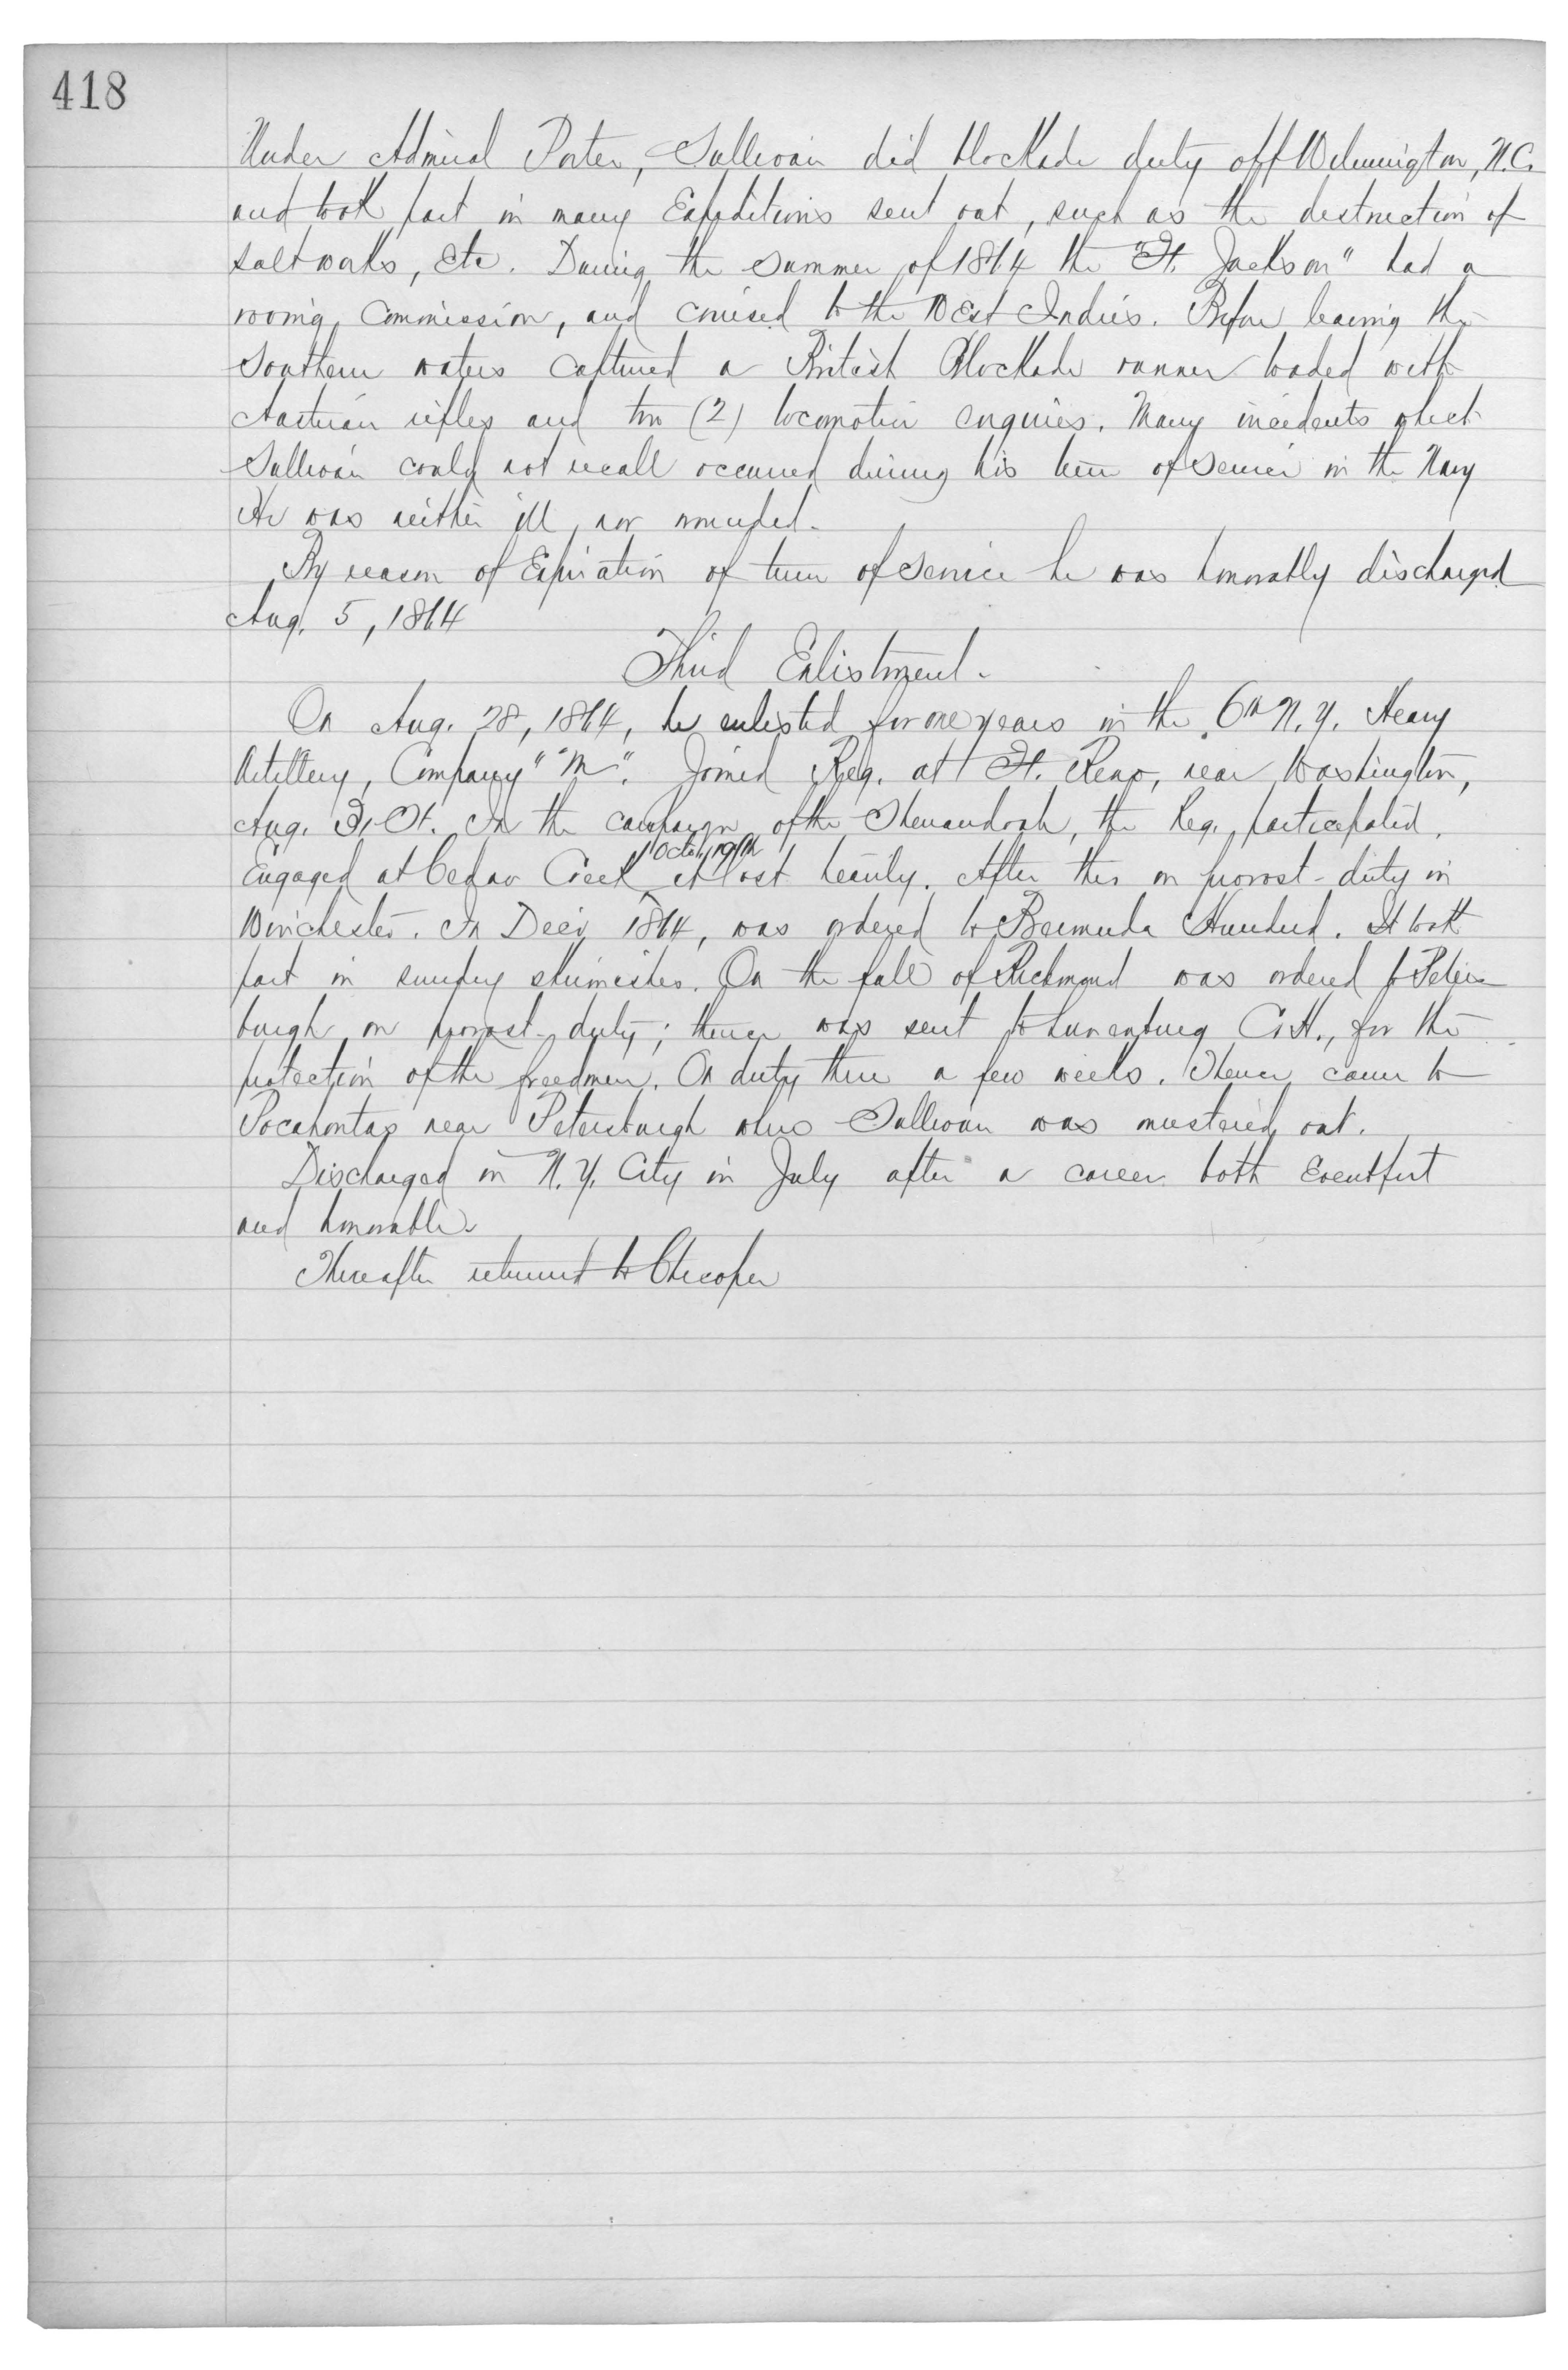 418
Under Admiral Porter, Sullivan did blockade duty off Wilmington, N.C.
and took part in many Expeditions sent out, such as the destruction of
salt works, etc. During the summer of 1864 the "Ft. Jackson" had a
roving Commission, and cruised to the West Indies. Before leaving the
Southern waters captured a British Blockade runner loaded with
Austrian rifles and two (2) locomotive engines. Many incidents which
Sullivan could not recall occurred during his term of service in the Navy
He was neither ill, nor wounded.
By reason of Expiration of term of service he was honorably discharged
Aug. 5, 1864
Third Enlistment.
On Aug. 28, 1864, he enlisted for one years in the 6th N.Y. Heavy
Artillery, Company "M". Joined Reg. at Ft. Reno, near Washington,
Aug. 31st. In the campaign of the Shenandoah, the Reg. participated.
Engaged at Cedar Creek Octo. 19th it lost heavily. After this on provost-duty in
Winchester. In Dec. 1864, was ordered to Bermuda Hundred. It took
part in sundry skirmishes. On the fall of Richmond was ordered to Peters-
burgh on provost-duty; thence was sent to Lunenburg C.H., for the
protection of the freedmen. On duty there a few weeks. Thence came to
Pocahontas near Petersburgh where Sullivan was mustered out.
Discharged in N.Y. City in July after a career both Eventful
and honorable.
Thereafter returned to Chicopee